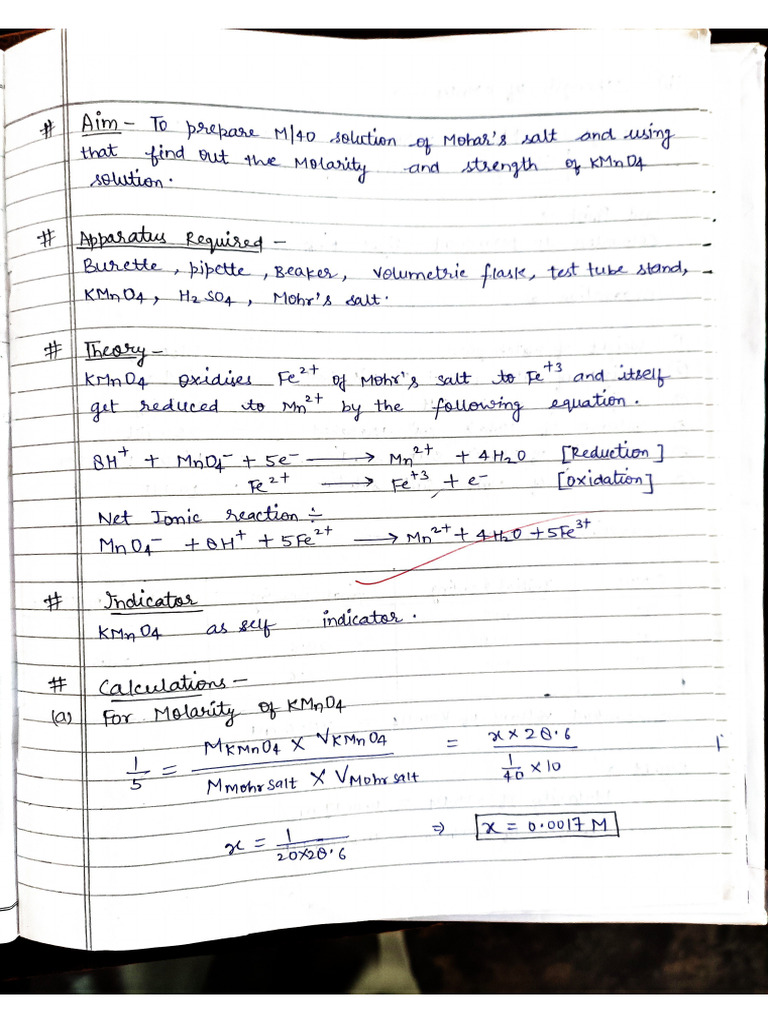 # Aim - To prepare M/40 solution of Mohar's salt and using
that find out the Molarity and strength of KMnO4
solution.
# Apparatus Required -
Burette, pipette, Beaker, volumetric flask, test tube stand,
KMnO4, H2SO4, Mohr's salt.
# Theory -
KMnO4 oxidises Fe²⁺ of Mohr's salt to Fe⁺³ and itself
get reduced to Mn²⁺ by the following equation.
8H⁺ + MnO4⁻ + 5e⁻ ⟶ Mn²⁺ + 4H2O [Reduction]
Fe²⁺ ⟶ Fe⁺³ + e⁻ [Oxidation]
Net Ionic reaction ÷
MnO4⁻ + 8H⁺ + 5Fe²⁺ ⟶ Mn²⁺ + 4H2O + 5Fe³⁺
# Indicator
KMnO4 as self indicator.
# Calculations -
(a) For Molarity of KMnO4
1/5 = (MKMnO4 × VKMnO4)/(MMohr salt × VMohr salt) = (x × 28.6)/(1/40 × 10)
x = 1/(20×28.6) ⇒ x = 0.0017 M